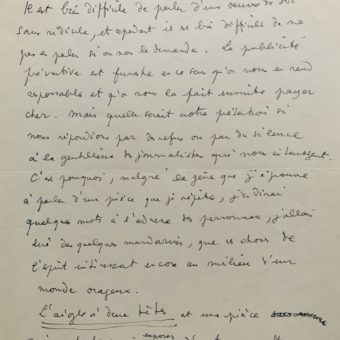 Il est bien difficile de parler d'une oeuvre de soi
sans ridicule, et cependant il est bien difficile de ne
pas en parler si on nous le demande. La publicité
préventive est funeste en ce sens qu'on nous en rend
responsable et qu'on nous la fait ensuite payer
cher. Mais quelle serait notre prétention si
nous répondions par des refus ou par du silence
à la gentillesse des journalistes qui nous interrogent.
C'est pourquoi, malgré la gêne que j'éprouve
à parler d'une pièce que je répète, j'en dirai
quelques mots à l'adresse des personnes, j'allais
dire des quelques mandarins, que ces choses de
l'esprit intéressent encore au milieu d'un
monde orageux.
L'aigle à deux têtes est une pièce